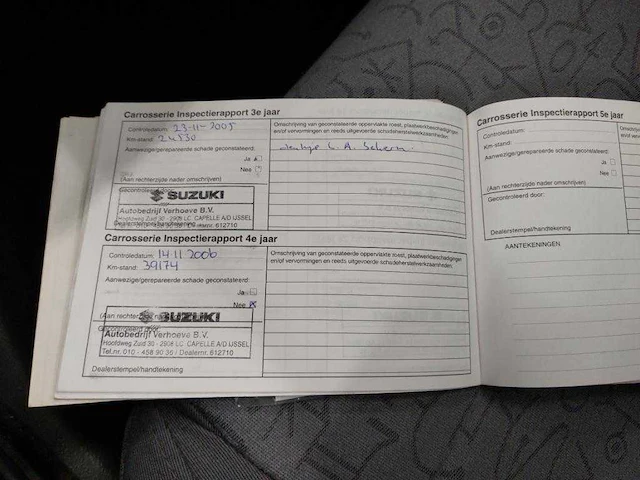 Carrosserie Inspectierapport 3e jaar
Controledatum: 23-11-2005
Km-stand: 24530
Aanwezige/gerepareerde schade geconstateerd:
Ja
Nee
(Aan rechterzijde nader omschrijven)
Gecontroleerd door:
SUZUKI
Autobedrijf Verhoeve B.V.
Hoofdweg Zuid 30 - 2908 LC CAPELLE A/D IJSSEL
Dealerstempel/handtekening
Dealernr. 612710
Omschrijving van geconstateerde oppervlakte roest, plaatwerkbeschadigingen
en/of vervormingen en reeds uitgevoerde schadeherstelwerkzaamheden.
L. A. Scherm
Carrosserie Inspectierapport 4e jaar
Controledatum: 14 11 2006
Km-stand: 39174
Aanwezige/gerepareerde schade geconstateerd:
Ja
Nee
(Aan rechterzijde
SUZUKI
Gecontroleerd door:
Autobedrijf Verhoeve B.V.
Hoofdweg Zuid 30 - 2908 LC CAPELLE A/D IJSSEL
Tel.nr. 010 - 458 90 35 / Dealernr. 612710
Dealerstempel/handtekening
Omschrijving van geconstateerde oppervlakte roest, plaatwerkbeschadigingen
en/of vervormingen en reeds uitgevoerde schadeherstelwerkzaamheden.
Carrosserie Inspectierapport 5e jaar
Controledatum:
Km-stand:
Aanwezige/gerepareerde schade geconstateerd:
Ja
Nee
(Aan rechterzijde nader omschrijven)
Gecontroleerd door:
Dealerstempel/handtekening
AANTEKENINGEN